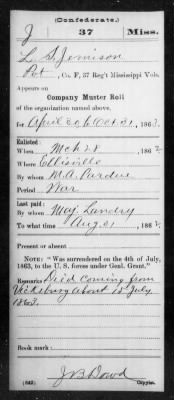 (Confederate.)
J 37 Miss.
L. S. Jemison
Pvt, Co. F, 37 Reg't Mississippi Vols.
Appears on
Company Muster Roll
of the organization named above,
for April 30 to Oct 31, 1863.
Enlisted:
When Mch 28, 1862
Where Ellisville
By whom M. A. Pardue
Period War
Last paid:
By whom Maj. Landry
To what time Aug 31, 1862
Present or absent
NOTE: "Was surrendered on the 4th of July,
1863, to the U. S. forces under Genl. Grant."
Remarks: Died coming from
Vicksburg about 15 July
1863.
Book mark:
(642) J B Dowd
Copyist.